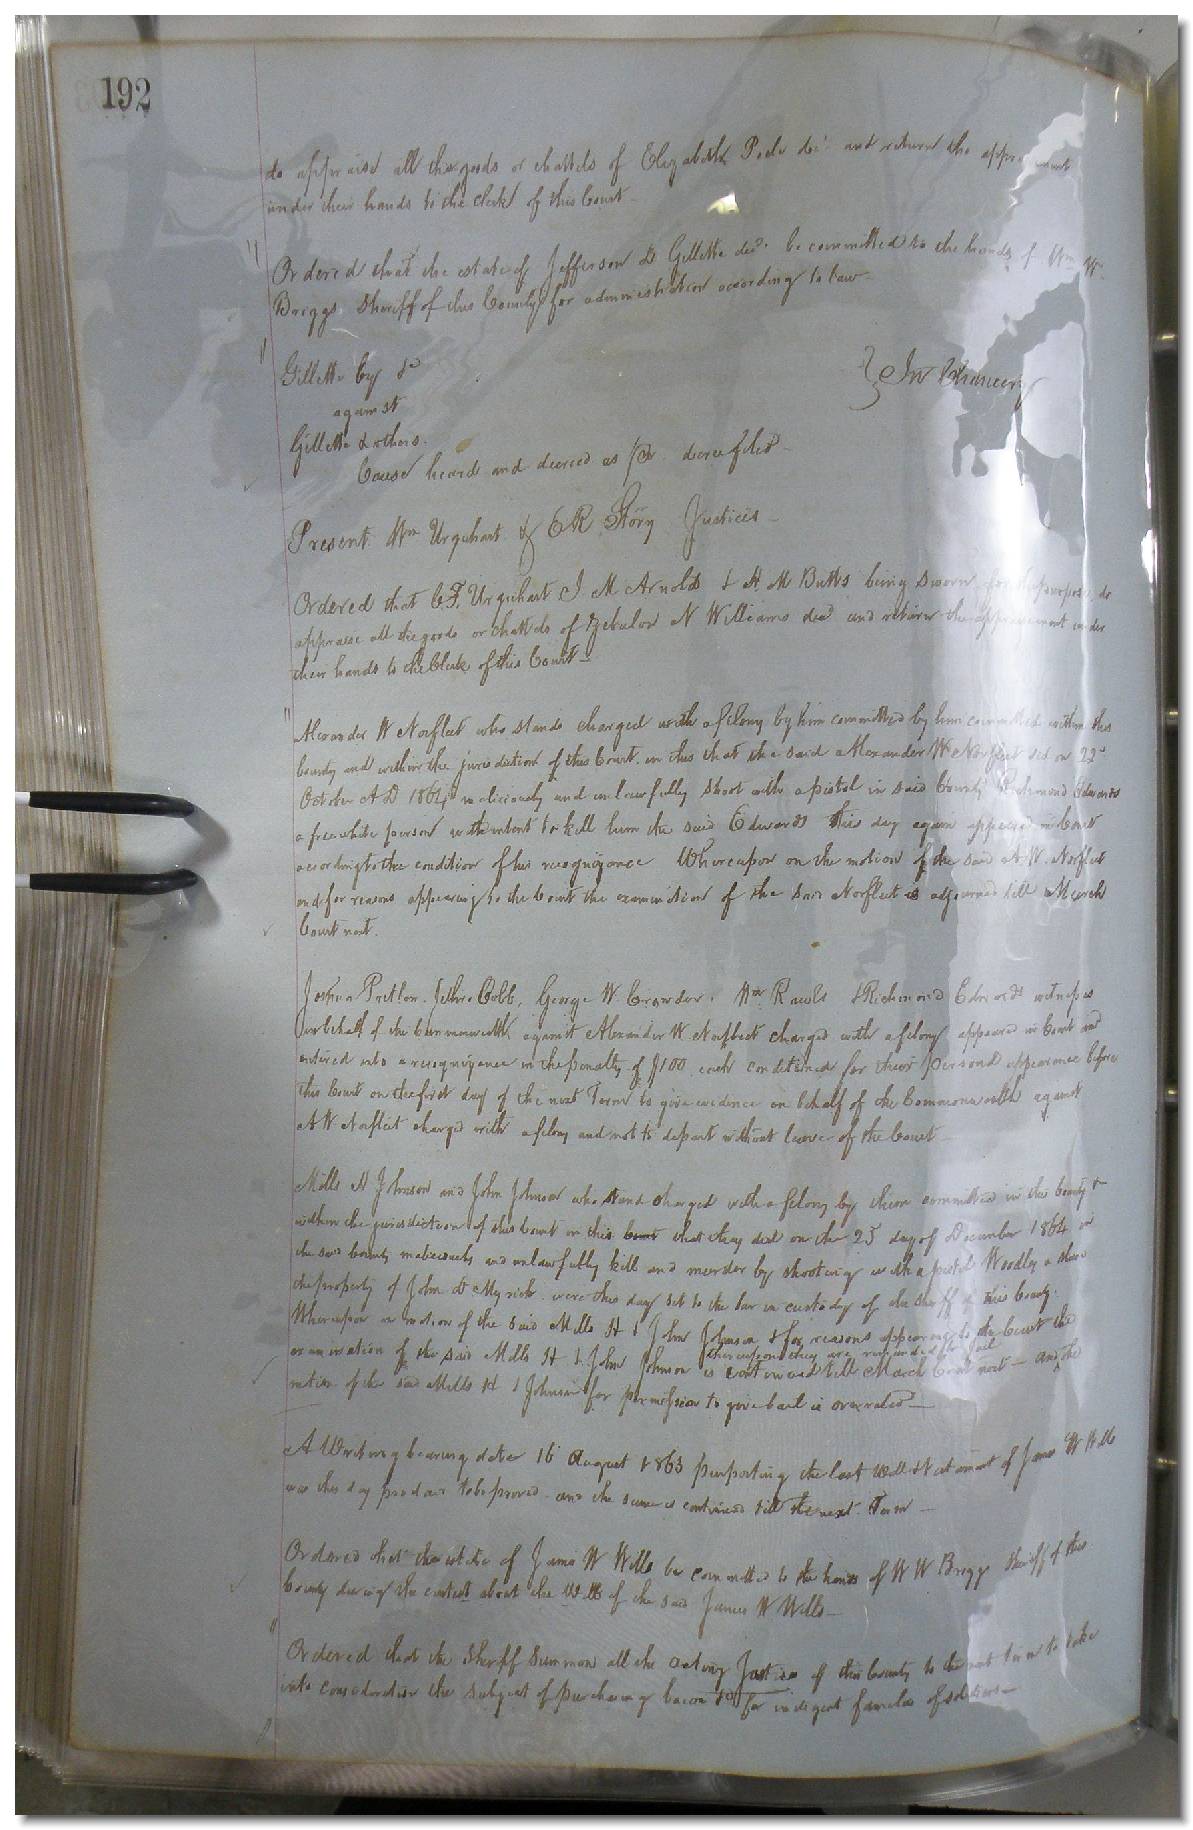 192
do appraise all the goods or chattels of Elizabeth decd and return the appraisement
under their hands to the clerk of this Court
Ordered that the estate of Jefferson D Gillette decd be committed to the hands of Wm W
Briggs Sheriff of this County for administration according to law
Gillette by &c
against
Gillette & others.
} In Chancery
Cause heard and decreed as pr decree filed
Present Wm Urquhart & E R Story Justices
Ordered that C. F. Urquhart J M Arnold & H M Butts being sworn for the purpose do
appraise all the goods or chattels of Zebulon N Williams decd and return the appraisement under
their hands to the Clerk of this Court
Alexander W Norfleet who stands charged with a felony by him committed by him committed within this
County and within the jurisdiction of this Court in this that the said Alexander W Norfleet did on 22d
October A D 1864 maliciously and unlawfully shoot with a pistol in said County Richmond Edwards
a free white person with intent to kill him the said Edwards this day again appeared in Court
according to the condition of his recognizance Whereupon on the motion of the said A W Norfleet
and for reasons appearing to the Court the examination of the said Norfleet is adjourned till March
Court next.
Joshua Pretlow, Jethro Cobb, George W Crowder, Wm Rawls & Richmond Edwards witnesses
on behalf of the Commonwealth against Alexander W. Norfleet charged with a felony appeared in Court and
entered into a recognizance in the penalty of $100 each conditioned for their personal appearance before
this Court on the first day of the next Term to give evidence on behalf of the Commonwealth against
A W Norfleet charged with a felony and not to depart without leave of the Court
Mills H Johnson and John Johnson who stand charged with a felony by them committed in this County &
within the jurisdiction of this Court in this that they did on the 25 day of December 1864 in
the said County maliciously and unlawfully kill and murder by shooting with a pistol Woodley a slave
the property of John D Myrick were this day set to the bar in custody of the sheriff of this County.
Whereupon on motion of the said Mills H & John Johnson & for reasons appearing to the Court the
thereupon they are remanded to jail
examination of the said Mills H & John Johnson is continued till March Court next — and the
motion of the said Mills H & Johnson for permission to give bail is overruled
A Writing bearing date 16 August 1863 purporting the last Will & testament of James W Wills
was this day produced to be proved and the same is continued till the next Term
Ordered that the estate of James W Wills be committed to the hands of W W Briggs Sheriff of this
County during the contest about the Will of the said James W Wills
Ordered that the Sheriff Summon all the acting Justices of this County to the next Term to take
into consideration the subject of purchasing bacon &c for indigent families of soldiers